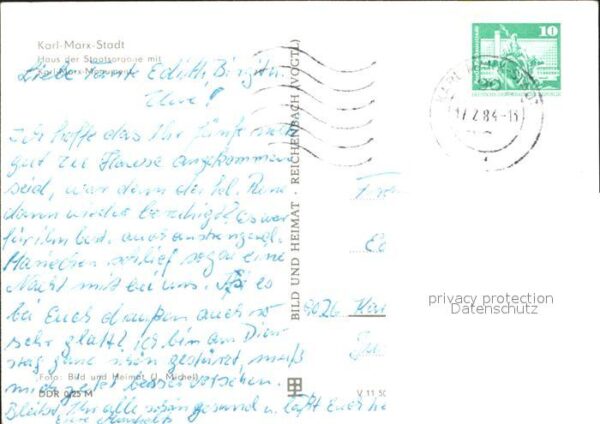 Karl-Marx-Stadt
Haus der Staatsorgane mit
Karl-Marx-Monument
Liebe Edith, Birgit
Uwe!
Ich hoffe das Ihr fünf
gut zu Hause angekommen
seid, war denn der kl. René
dann wieder beruhigt, es war
für ihn best. auch anstrengend.
Hänschen schlief sogar eine
Nacht mit bei uns. es
bei Euch draußen auch so
sehr glatt? ich bin am Diens
tag ganz schön gestürzt, muß
mich jetzt besser vorsehen.
Bleibt Ihr alle schön gesund u. laßt Euch
Foto: Bild und Heimat (J. Michel)
DDR 0,25 M
BILD UND HEIMAT · REICHENBACH (VOGTL)
10
KARL-MARX-STADT
17.2.84-15
9026
V 11 50
privacy protection
Datenschutz